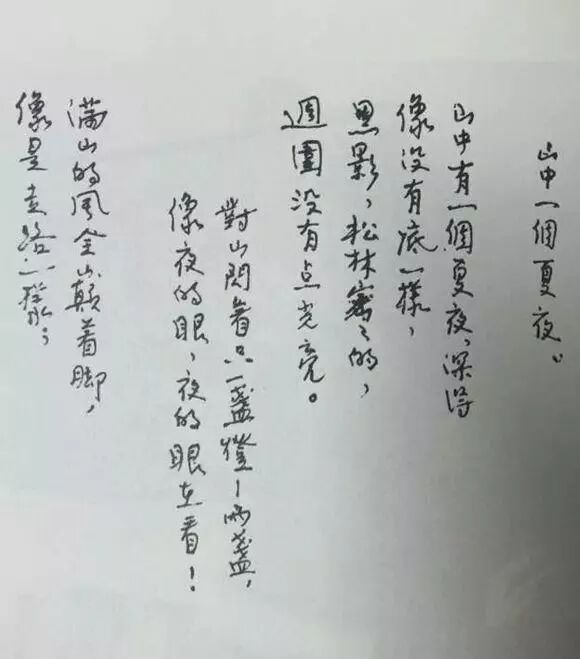 山中一個夏夜。
山中有一個夏夜，深得
像没有底一樣，
黑影，松林密々的，
週圍没有点光亮。
對山閃着只一盞燈—兩盞，
像夜的眼，夜的眼在看！
满山的風全蹑着脚，
像是走路一様，